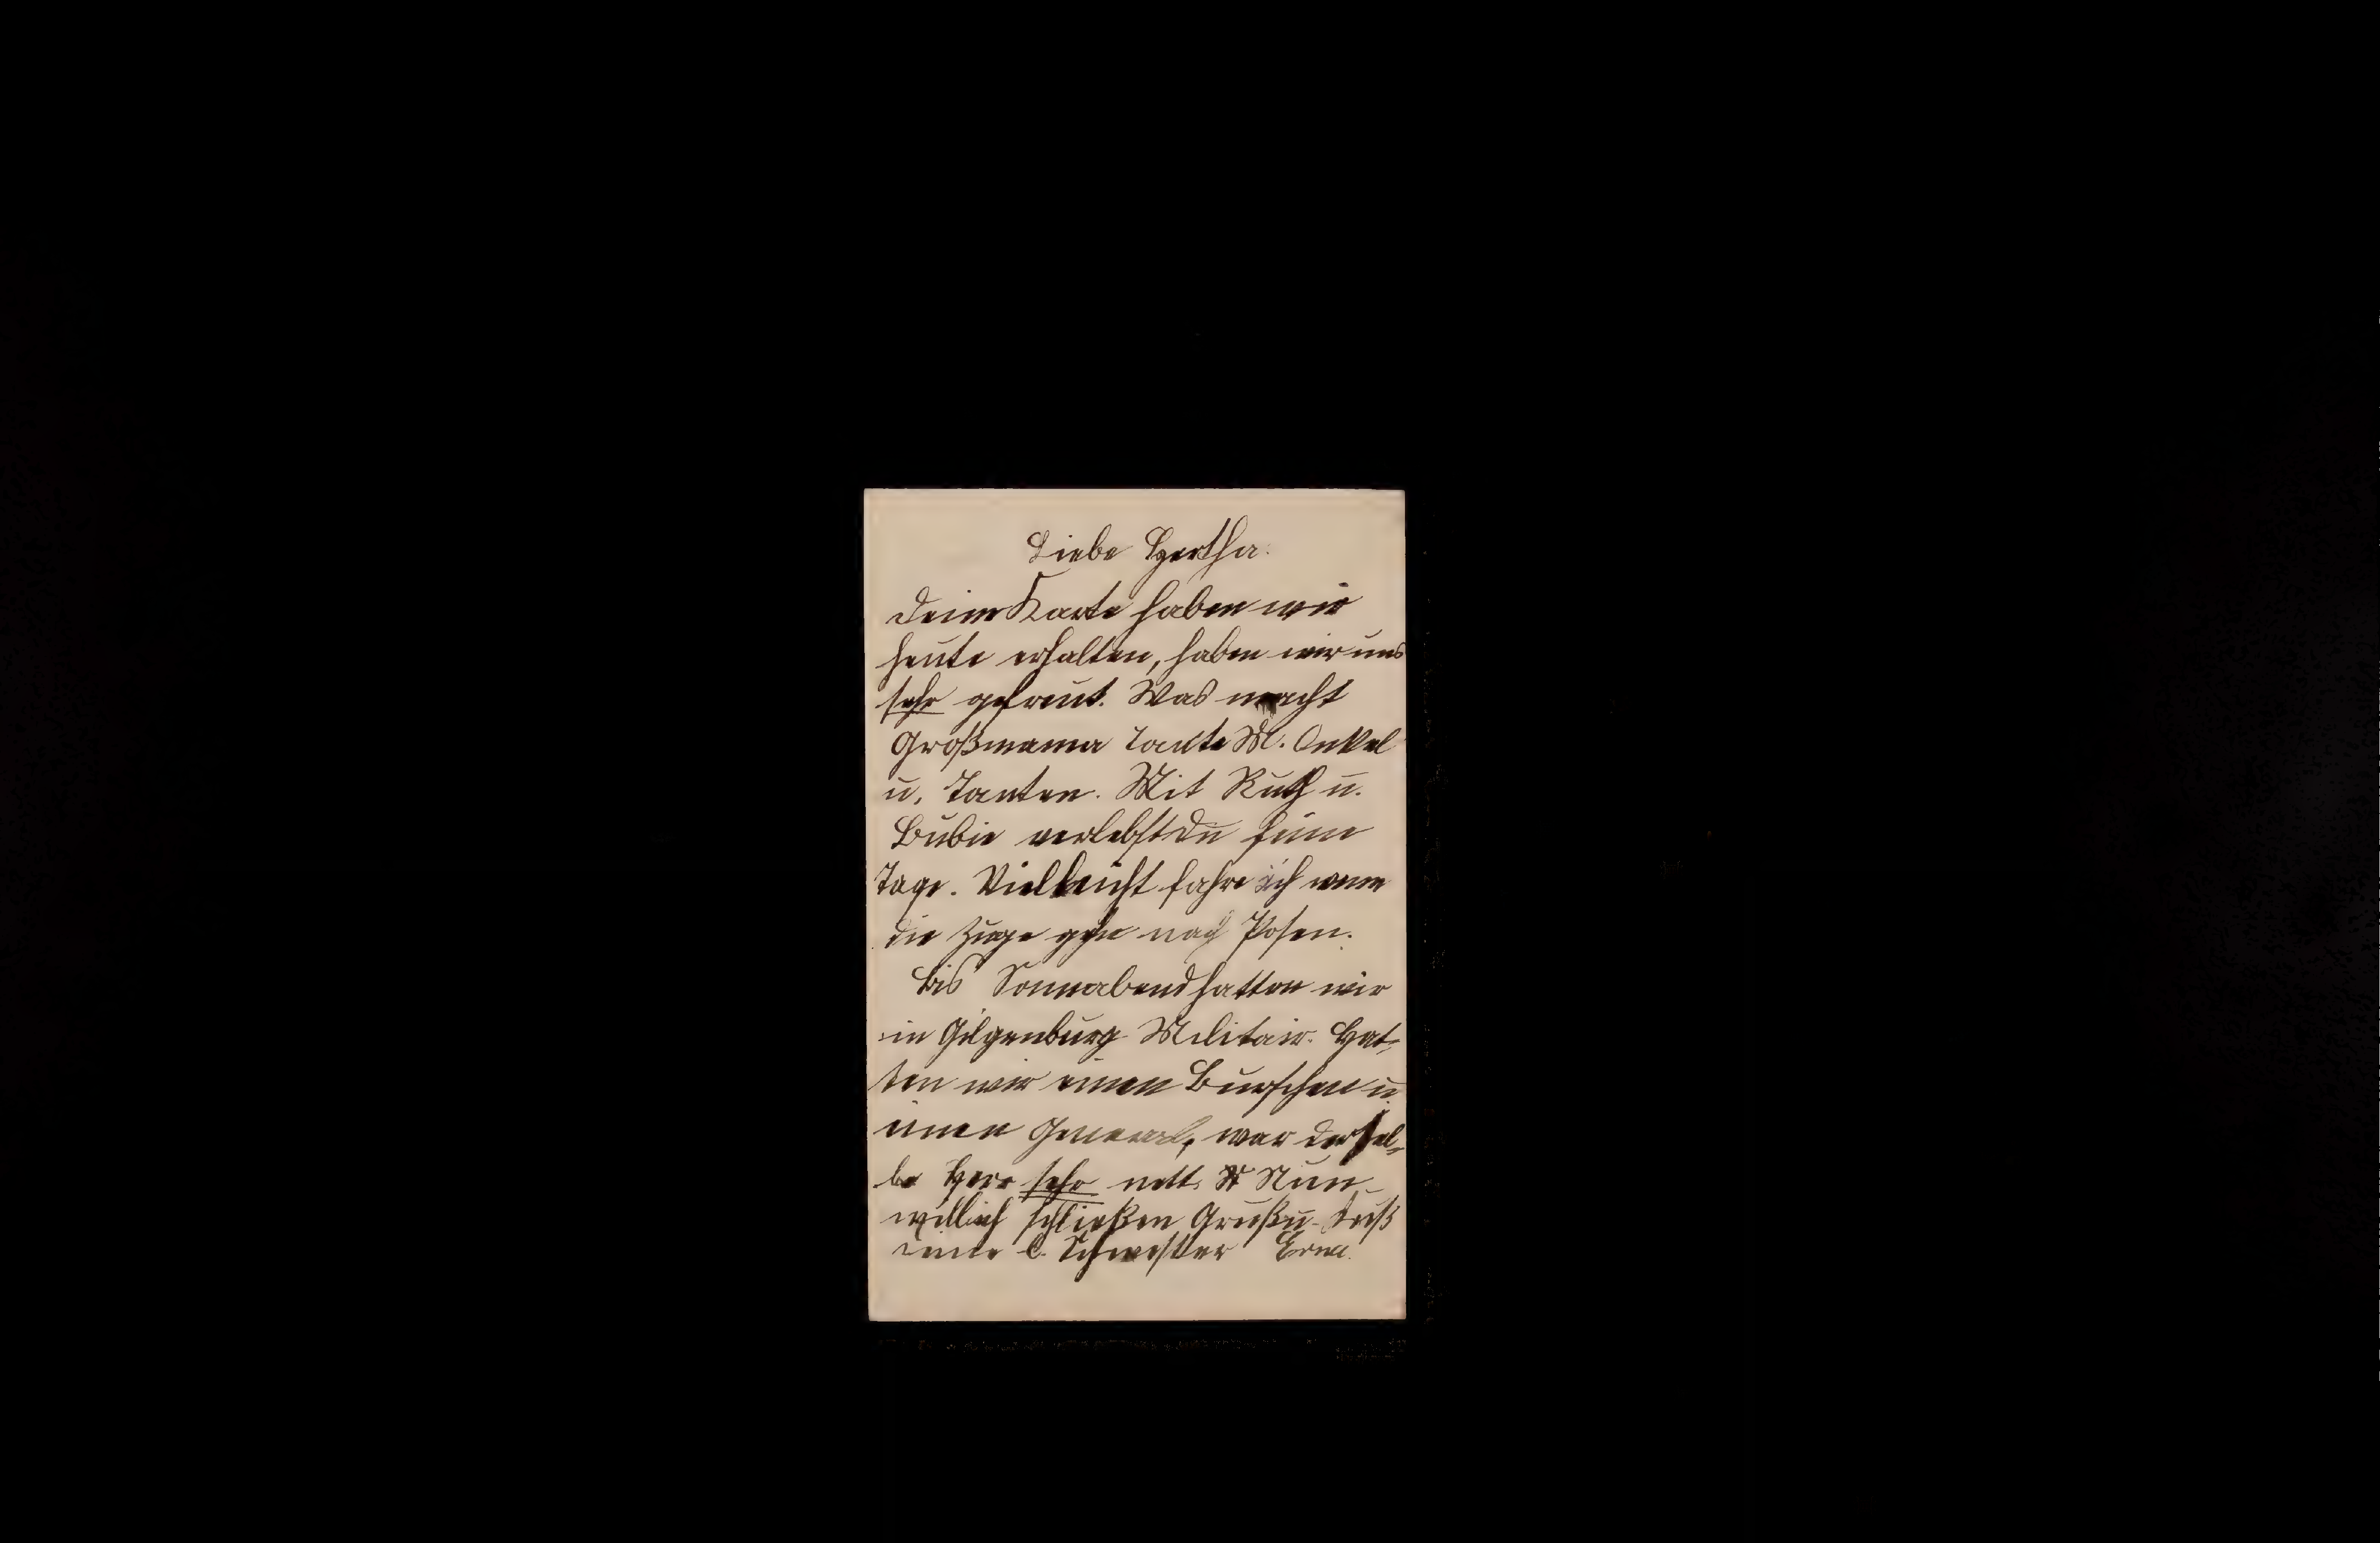 Liebe Hertha.
Deine Karte haben wir
heute erhalten, haben wir uns
sehr gefreut. Was macht
Großmama Tante M. Onkel
u. Tanten. Mit Ruth u.
Bubie verlebst du feine
Tage. Vielleicht fahre ich wenn
die Züge gehn nach Posen.
Bis Sonnabend hatten wir
in Gilgenburg Militair. Hat-
ten wir einen Burschen u.
einen General, war dersel-
be Herr sehr nett. Nun
will ich schließen Gruß u. Kuß
Deine l. Schwester Erna.